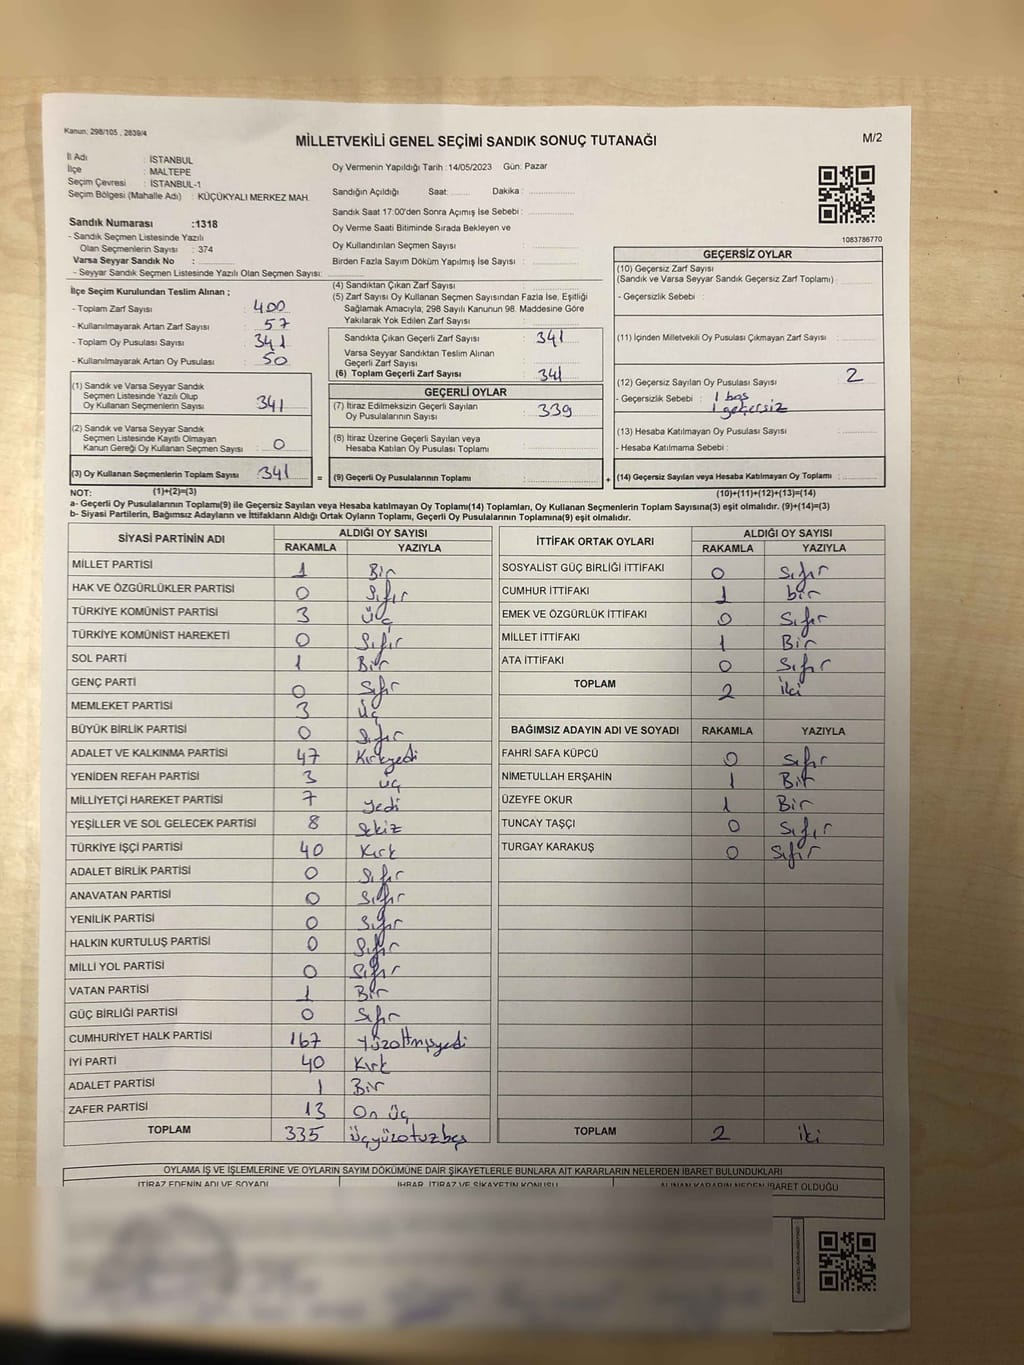 Kanun; 298/105 , 2839/4
MİLLETVEKİLİ GENEL SEÇİMİ SANDIK SONUÇ TUTANAĞI
M/2
İl Adı : İSTANBUL
İlçe : MALTEPE
Seçim Çevresi : İSTANBUL-1
Seçim Bölgesi (Mahalle Adı) : KÜÇÜKYALI MERKEZ MAH.
Sandık Numarası :1318
- Sandık Seçmen Listesinde Yazılı
Olan Seçmenlerin Sayısı : 374
Varsa Seyyar Sandık No :
- Seyyar Sandık Seçmen Listesinde Yazılı Olan Seçmen Sayısı:
Oy Vermenin Yapıldığı Tarih :14/05/2023 Gün: Pazar
Sandığın Açıldığı Saat: Dakika :
Sandık Saat 17:00'den Sonra Açımış İse Sebebi :
Oy Verme Saati Bitiminde Sırada Bekleyen ve
Oy Kullandırılan Seçmen Sayısı :
Birden Fazla Sayım Döküm Yapılmış İse Sayısı :
1083786770
İlçe Seçim Kurulundan Teslim Alınan ;
- Toplam Zarf Sayısı : 400
- Kullanılmayarak Artan Zarf Sayısı : 57
- Toplam Oy Pusulası Sayısı : 341
- Kullanılmayarak Artan Oy Pusulası : 50
(1) Sandık ve Varsa Seyyar Sandık
Seçmen Listesinde Yazılı Olup
Oy Kullanan Seçmenlerin Sayısı : 341
(2) Sandık ve Varsa Seyyar Sandık
Seçmen Listesinde Kayıtlı Olmayan
Kanun Gereği Oy Kullanan Seçmen Sayısı : 0
(3) Oy Kullanan Seçmenlerin Toplam Sayısı : 341
(1)+(2)=(3)
(4) Sandıktan Çıkan Zarf Sayısı :
(5) Zarf Sayısı Oy Kullanan Seçmen Sayısından Fazla İse, Eşitliği
Sağlamak Amacıyla, 298 Sayılı Kanunun 98. Maddesine Göre
Yakılarak Yok Edilen Zarf Sayısı :
Sandıkta Çıkan Geçerli Zarf Sayısı : 341
Varsa Seyyar Sandıktan Teslim Alınan
Geçerli Zarf Sayısı :
(6) Toplam Geçerli Zarf Sayısı : 341
GEÇERLİ OYLAR
(7) İtiraz Edilmeksizin Geçerli Sayılan
Oy Pusulalarının Sayısı : 339
(8) İtiraz Üzerine Geçerli Sayılan veya
Hesaba Katılan Oy Pusulası Toplamı :
= (9) Geçerli Oy Pusulalarının Toplamı :
GEÇERSİZ OYLAR
(10) Geçersiz Zarf Sayısı
(Sandık ve Varsa Seyyar Sandık Geçersiz Zarf Toplamı) :
- Geçersizlik Sebebi :
(11) İçinden Milletvekili Oy Pusulası Çıkmayan Zarf Sayısı :
(12) Geçersiz Sayılan Oy Pusulası Sayısı : 2
- Geçersizlik Sebebi : 1 boş
1 geçersiz
(13) Hesaba Katılmayan Oy Pusulası Sayısı :
- Hesaba Katılmama Sebebi :
+ (14) Geçersiz Sayılan veya Hesaba Katılmayan Oy Toplamı :
(10)+(11)+(12)+(13)=(14)
NOT:
a- Geçerli Oy Pusulalarının Toplamı(9) ile Geçersiz Sayılan veya Hesaba katılmayan Oy Toplamı(14) Toplamları, Oy Kullanan Seçmenlerin Toplam Sayısına(3) eşit olmalıdır. (9)+(14)=(3)
b- Siyasi Partilerin, Bağımsız Adayların ve İttifakların Aldığı Ortak Oyların Toplamı, Geçerli Oy Pusulalarının Toplamına(9) eşit olmalıdır.
SİYASİ PARTİNİN ADI
ALDIĞI OY SAYISI
RAKAMLA YAZIYLA
MİLLET PARTİSİ 1 Bir
HAK VE ÖZGÜRLÜKLER PARTİSİ 0 Sıfır
TÜRKİYE KOMÜNİST PARTİSİ 3 Üç
TÜRKİYE KOMÜNİST HAREKETİ 0 Sıfır
SOL PARTİ 1 Bir
GENÇ PARTİ 0 Sıfır
MEMLEKET PARTİSİ 3 Üç
BÜYÜK BİRLİK PARTİSİ 0 Sıfır
ADALET VE KALKINMA PARTİSİ 47 Kırkyedi
YENİDEN REFAH PARTİSİ 3 üç
MİLLİYETÇİ HAREKET PARTİSİ 7 yedi
YEŞİLLER VE SOL GELECEK PARTİSİ 8 sekiz
TÜRKİYE İŞÇİ PARTİSİ 40 Kırk
ADALET BİRLİK PARTİSİ 0 Sıfır
ANAVATAN PARTİSİ 0 Sıfır
YENİLİK PARTİSİ 0 Sıfır
HALKIN KURTULUŞ PARTİSİ 0 Sıfır
MİLLİ YOL PARTİSİ 0 Sıfır
VATAN PARTİSİ 1 Bir
GÜÇ BİRLİĞİ PARTİSİ 0 Sıfır
CUMHURİYET HALK PARTİSİ 167 Yüzaltmışyedi
İYİ PARTİ 40 Kırk
ADALET PARTİSİ 1 Bir
ZAFER PARTİSİ 13 On üç
TOPLAM 335 Üçyüzotuzbeş
İTTİFAK ORTAK OYLARI
ALDIĞI OY SAYISI
RAKAMLA YAZIYLA
SOSYALIST GÜÇ BİRLİĞİ İTTİFAKI 0 Sıfır
CUMHUR İTTİFAKI 1 bir
EMEK VE ÖZGÜRLÜK İTTİFAKI 0 Sıfır
MİLLET İTTİFAKI 1 Bir
ATA İTTİFAKI 0 Sıfır
TOPLAM 2 iki
BAĞIMSIZ ADAYIN ADI VE SOYADI RAKAMLA YAZIYLA
FAHRİ SAFA KÜPCÜ 0 Sıfır
NİMETULLAH ERŞAHİN 1 Bir
ÜZEYFE OKUR 1 Bir
TUNCAY TAŞÇI 0 Sıfır
TURGAY KARAKUŞ 0 Sıfır
TOPLAM 2 iki
OYLAMA İŞ VE İŞLEMLERİNE VE OYLARIN SAYIM DÖKÜMÜNE DAİR ŞİKAYETLERLE BUNLARA AİT KARARLARIN NELERDEN İBARET BULUNDUKLARI
İTİRAZ EDENİN ADI VE SOYADI İHBAR, İTİRAZ VE ŞİKAYETİN KONUSU ALINAN KARARIN NEDEN İBARET OLDUĞU